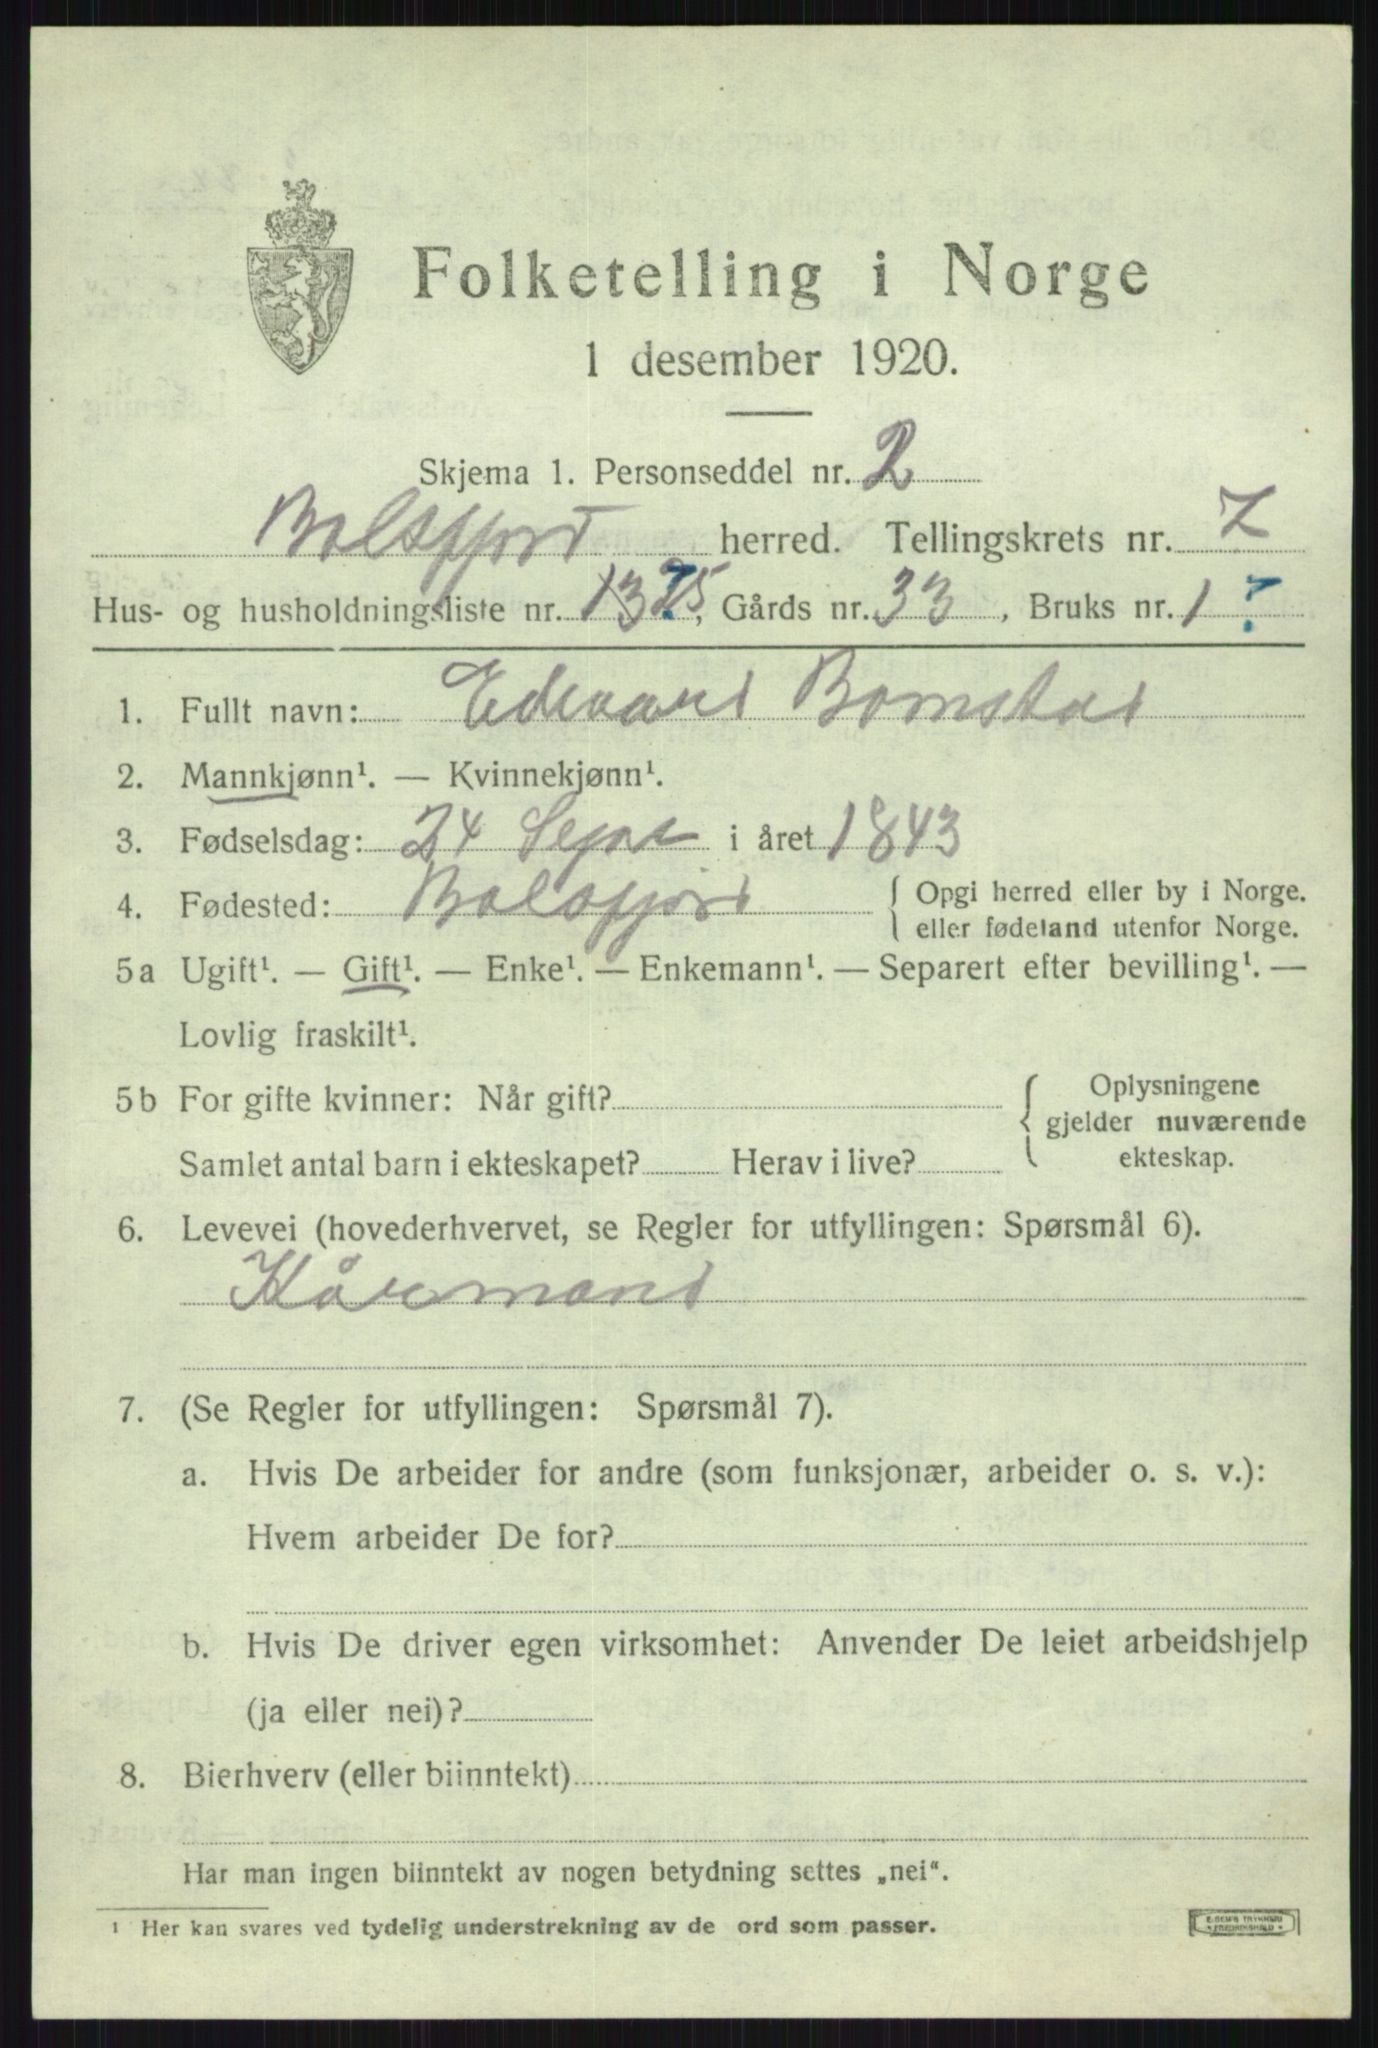 Folketelling i Norge
1 desember 1920.
Skjema 1. Personseddel nr. 2
Balsfjord herred. Tellingskrets nr. 7
Hus- og husholdningsliste nr. , Gårds nr. 33, Bruks nr. 1 ?
1. Fullt navn: Edvard Bomstad
2. Mannkjønn¹. — Kvinnekjønn¹.
3. Fødselsdag: 24 Sept i året 1843
4. Fødested: Balsfjord { Opgi herred eller by i Norge.
eller fødeland utenfor Norge.
5a Ugift¹. — Gift¹. — Enke¹. — Enkemann¹. — Separert efter bevilling¹. —
Lovlig fraskilt¹.
5b For gifte kvinner: Når gift? { Oplysningene
gjelder nuværende
Samlet antal barn i ekteskapet? Herav i live? ekteskap.
6. Levevei (hovederhvervet, se Regler for utfyllingen: Spørsmål 6).
Kårmand
7. (Se Regler for utfyllingen: Spørsmål 7).
a. Hvis De arbeider for andre (som funksjonær, arbeider o. s. v.):
Hvem arbeider De for?
b. Hvis De driver egen virksomhet: Anvender De leiet arbeidshjelp
(ja eller nei)?
8. Bierhverv (eller biinntekt)
Har man ingen biinntekt av nogen betydning settes „nei“.
¹ Her kan svares ved tydelig understrekning av de ord som passer.